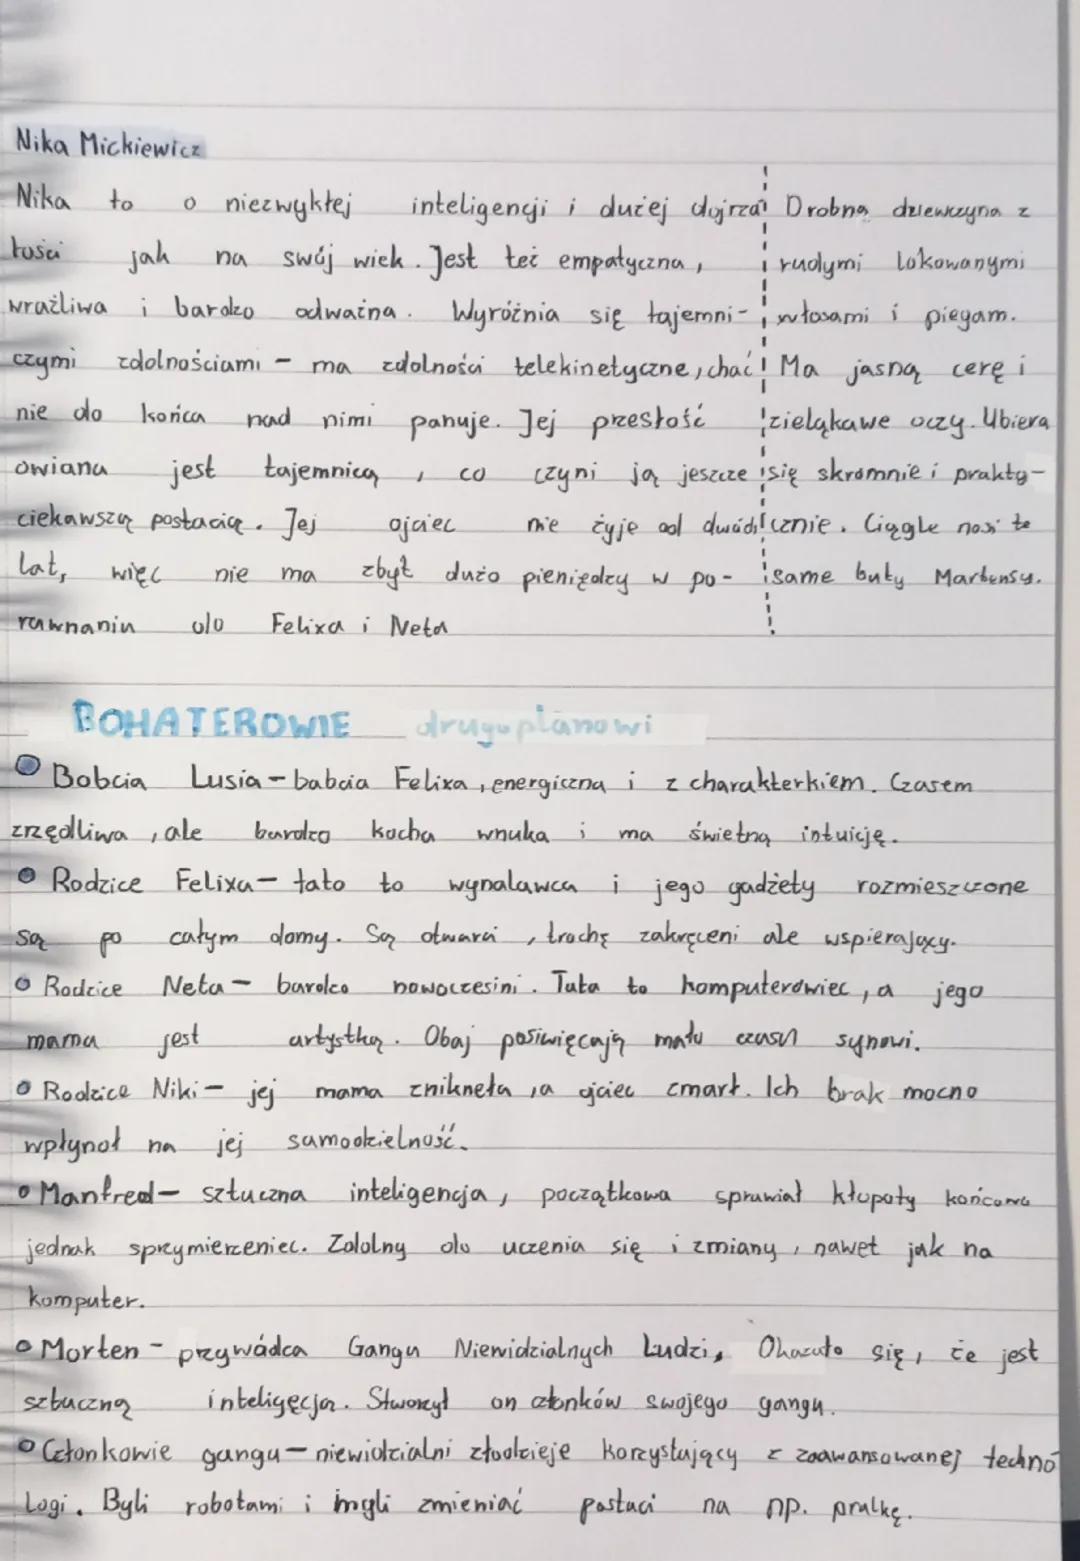 Nika Mickiewicz
Nika to o niezwykłej inteligencji i dużej dojrza
łości jak na swój wiek. Jest też empatyczna,
wrażliwa i bardzo odważna. Wyróżnia się tajemni-
czymi zdolnościami - ma zdolności telekinetyczne, chać
nie do końca nad nimi panuje. Jej przesłość
owiana jest tajemnicą, co czyni ją jeszcze
ciekawszą postacią. Jej ojciec nie żyje od dwóch
lat, więc nie ma zbyt dużo pieniędzy w po-
rawnaniu do Felixa i Neta
Drobna dziewczyna z
rudymi lokowanymi
włosami i piegam.
Ma jasną cerę i
zieląkawe oczy. Ubiera
się skromnie i prakty-
cznie. Ciągle nosi te
same buty Martensy.
BOHATEROWIE drugoplanowi
Bobcia Lusia - babcia Felixa, energiczna i z charakterkiem. Czasem
zrzędliwa, ale bardzo kocha wnuka i ma świetną intuicję.
Rodzice Felixa - tato to wynalawca i jego gadżety rozmieszczone
są po całym domy. Są otwarci, trochę zakręceni ale wspierający.
Rodzice Neta - bardzo nowoczesini. Tata to komputerowiec, a jego
mama jest artystką. Obaj posiwięcają mało czasu synowi.
Rodzice Niki - jej mama znikneła, a ojciec zmarł. Ich brak mocno
wpłynoł na jej samodzielność.
Manfred - sztuczna inteligencja, początkowa sprawiał kłopoty końcowo
jednak sprzymierzeniec. Zdolny do uczenia się i zmiany, nawet jak na
komputer.
Morten - przywódca Gangu Niewidzialnych Ludzi, Okazało się, że jest
sztuczną inteligęcją. Stworzył on członków swojego gangu.
Członkowie gangu - niewidzialni złodzieje korzystający z zaawansowanej techno
logi. Byli robotami i mgli zmieniać postaci na np. pralkę.